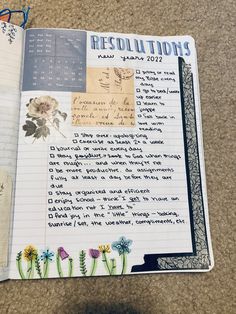 RESOLUTIONS
new years 2022
□ pray or read
my Bible every
day
□ go to bed/wake
up earlier
□ learn to
juggle
□ fall back in
love with
reading
□ stop over-apologizing
□ exercise at least 2x a week
□ journal or write every day
□ stay positive - look to God when things
are rough... and when they're ok
□ be more productive, do assignments
fully at least a day before they are
due
□ stay organized and efficient
□ enjoy school - think I get to have an
education not I have to
□ find joy in the "little" things - baking,
sunrise/set, the weather, compliments, etc.